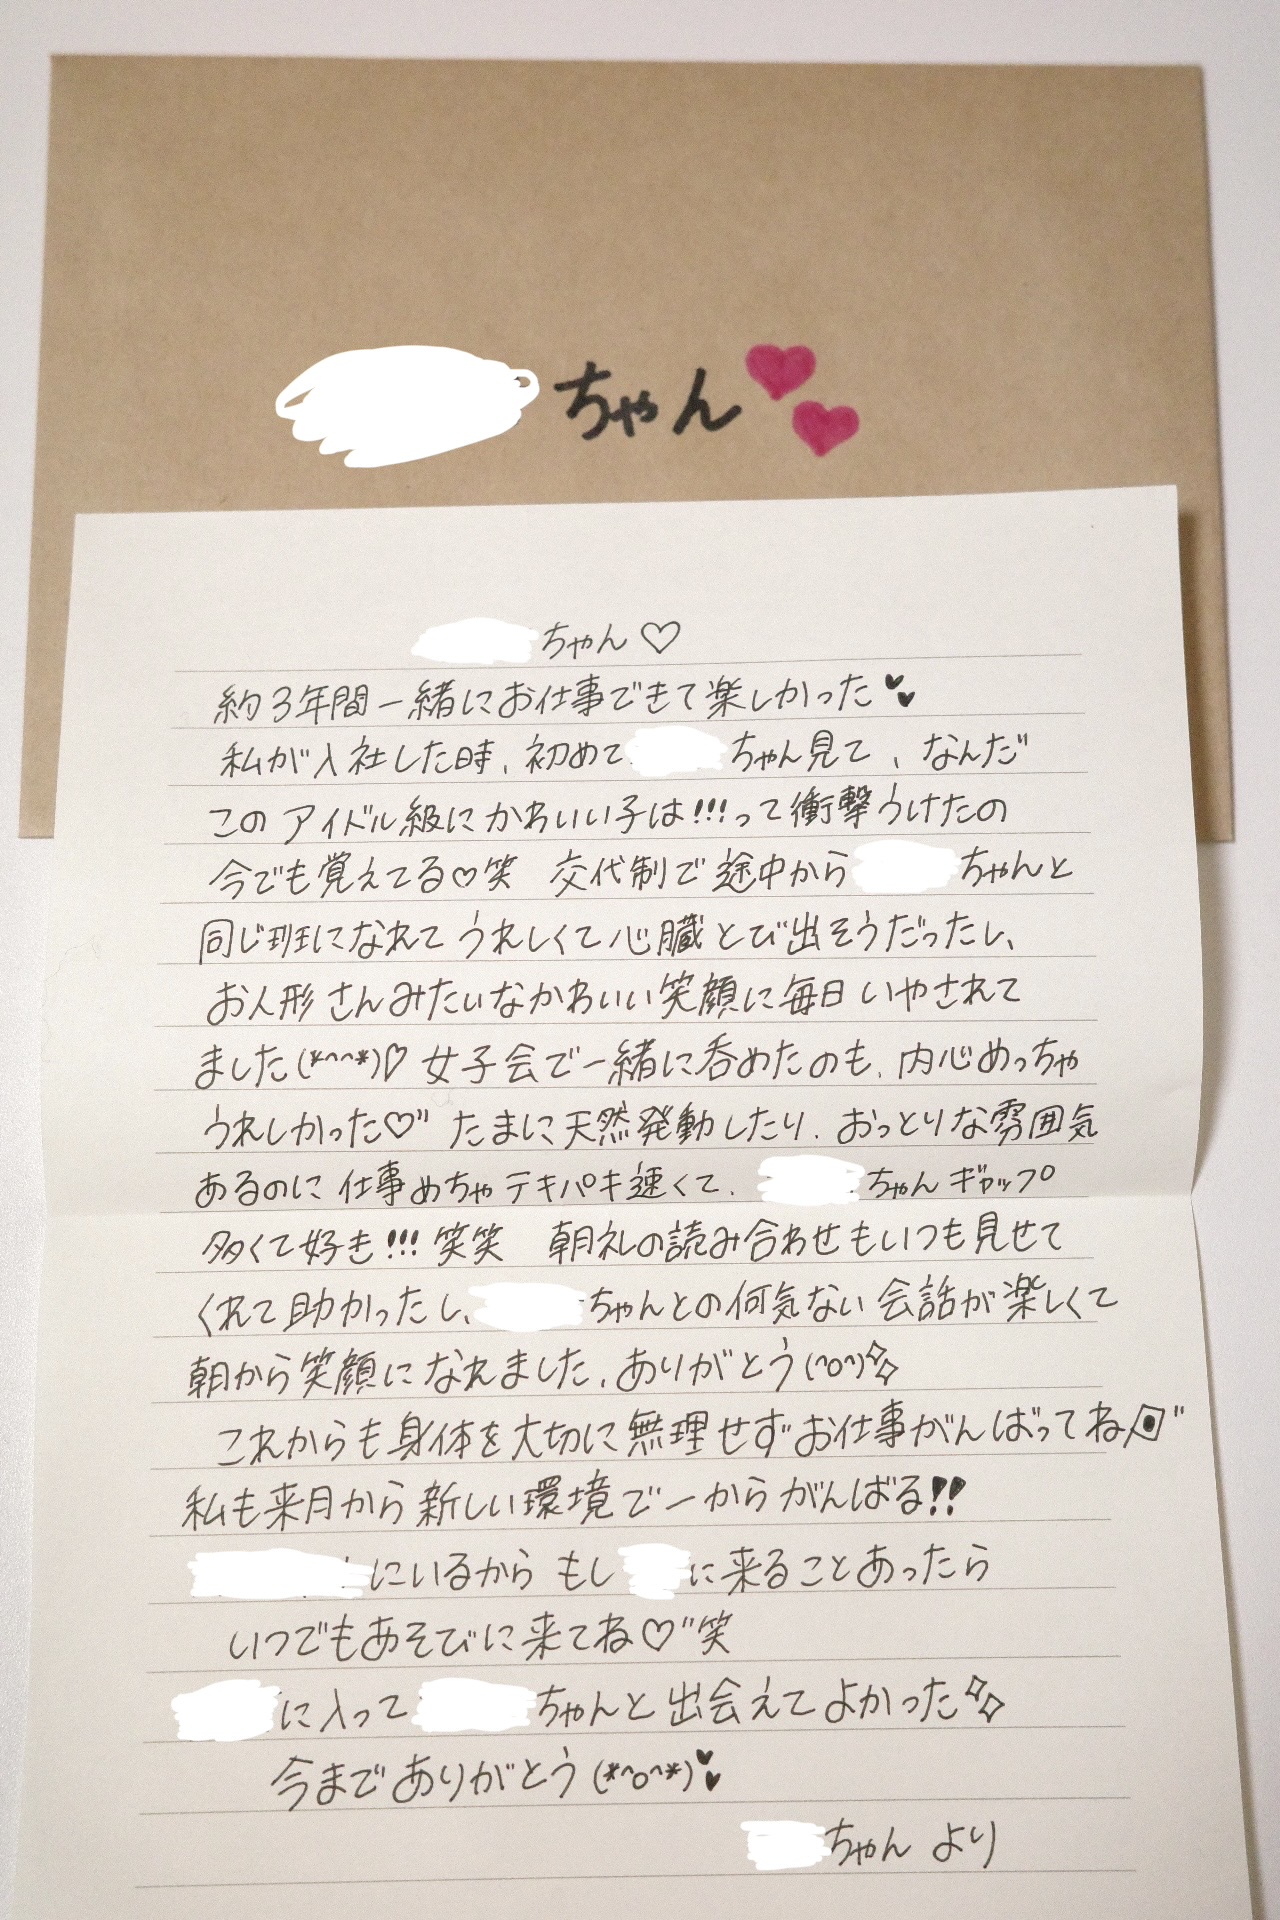 ちゃん
ちゃん♡
約3年間一緒にお仕事できて楽しかった
私が入社した時、初めて ちゃん見て、なんだ
このアイドル級にかわいい子は!!!って衝撃うけたの
今でも覚えてる♡笑 交代制で途中から ちゃんと
同じ班になれてうれしくて心臓とび出そうだったし、
お人形さんみたいなかわいい笑顔に毎日いやされて
ました(*^^*)♡女子会で一緒に呑めたのも、内心めっちゃ
うれしかった♡" たまに天然発動したり、おっとりな雰囲気
あるのに仕事めちゃテキパキ速くて、 ちゃんギャップ
多くて好き!!!笑笑 朝礼の読み合わせもいつも見せて
くれて助かったし、 ちゃんとの何気ない会話が楽しくて
朝から笑顔になれました、ありがとう(^o^)
これからも身体を大切に無理せずお仕事がんばってね
私も来月から新しい環境で一からがんばる!!
にいるからもし に来ることあったら
いつでもあそびに来てね♡"笑
に入って ちゃんと出会えてよかった
今までありがとう(*^o^*)
ちゃんより